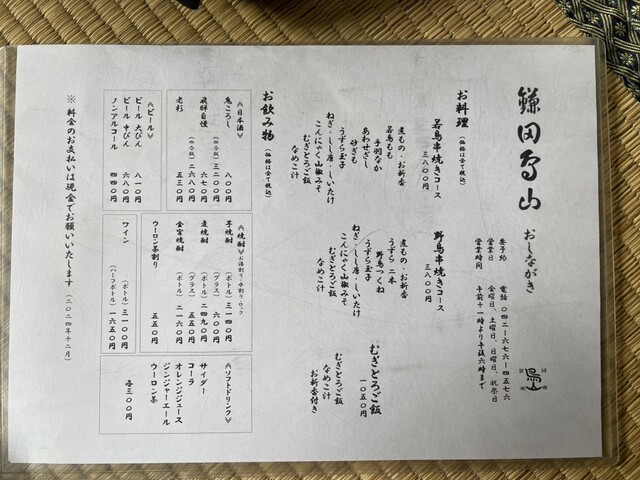 鎌田鳥山
おしながき
要予約 電話 〇四二-六七六-四五七六
営業日 金曜日、土曜日、日曜日、祝祭日
営業時間 午前十一時より午後六時まで
お料理 (価格は全て税込)
若鳥串焼きコース
三八〇〇円
煮もの・お新香
若鳥もも
手羽なか
あわせざき
砂ぎも
うずら玉子
ねぎ・しし唐・しいたけ
こんにゃく山椒みそ
むぎとろご飯
なめこ汁
野鳥串焼きコース
三八〇〇円
煮もの・お新香
うずら 二本
野鳥つくね
うずら玉子
ねぎ・しし唐・しいたけ
こんにゃく山椒みそ
むぎとろご飯
なめこ汁
むぎとろご飯
一〇五〇円
むぎとろご飯
なめこ汁
お新香付き
お飲み物 (価格は全て税込)
≪日本酒≫
鬼ころし 八〇〇円
(四合瓶) 三二〇〇円
飛騨自慢 六七〇円
(四合瓶) 二六八〇円
老杉 五三〇円
≪ビール≫
ビール 大びん 八一〇円
ビール 中びん 六八〇円
ノンアルコール 四四〇円
≪焼酎≫ お湯割り・水割り・ロック
芋焼酎 (ボトル) 三一四〇円
(グラス) 六〇〇円
麦焼酎 (ボトル) 二四九〇円
(グラス) 五五〇円
金宮焼酎 (ボトル) 二一六〇円
ウーロン茶割り 五五〇円
ワイン (ボトル) 三一〇〇円
(ハーフボトル) 一六五〇円
≪ソフトドリンク≫
サイダー
コーラ
オレンジジュース
ジンジャーエール
ウーロン茶
各三〇〇円
※ 料金のお支払いは現金でお願いいたします (二〇二四年十二月)